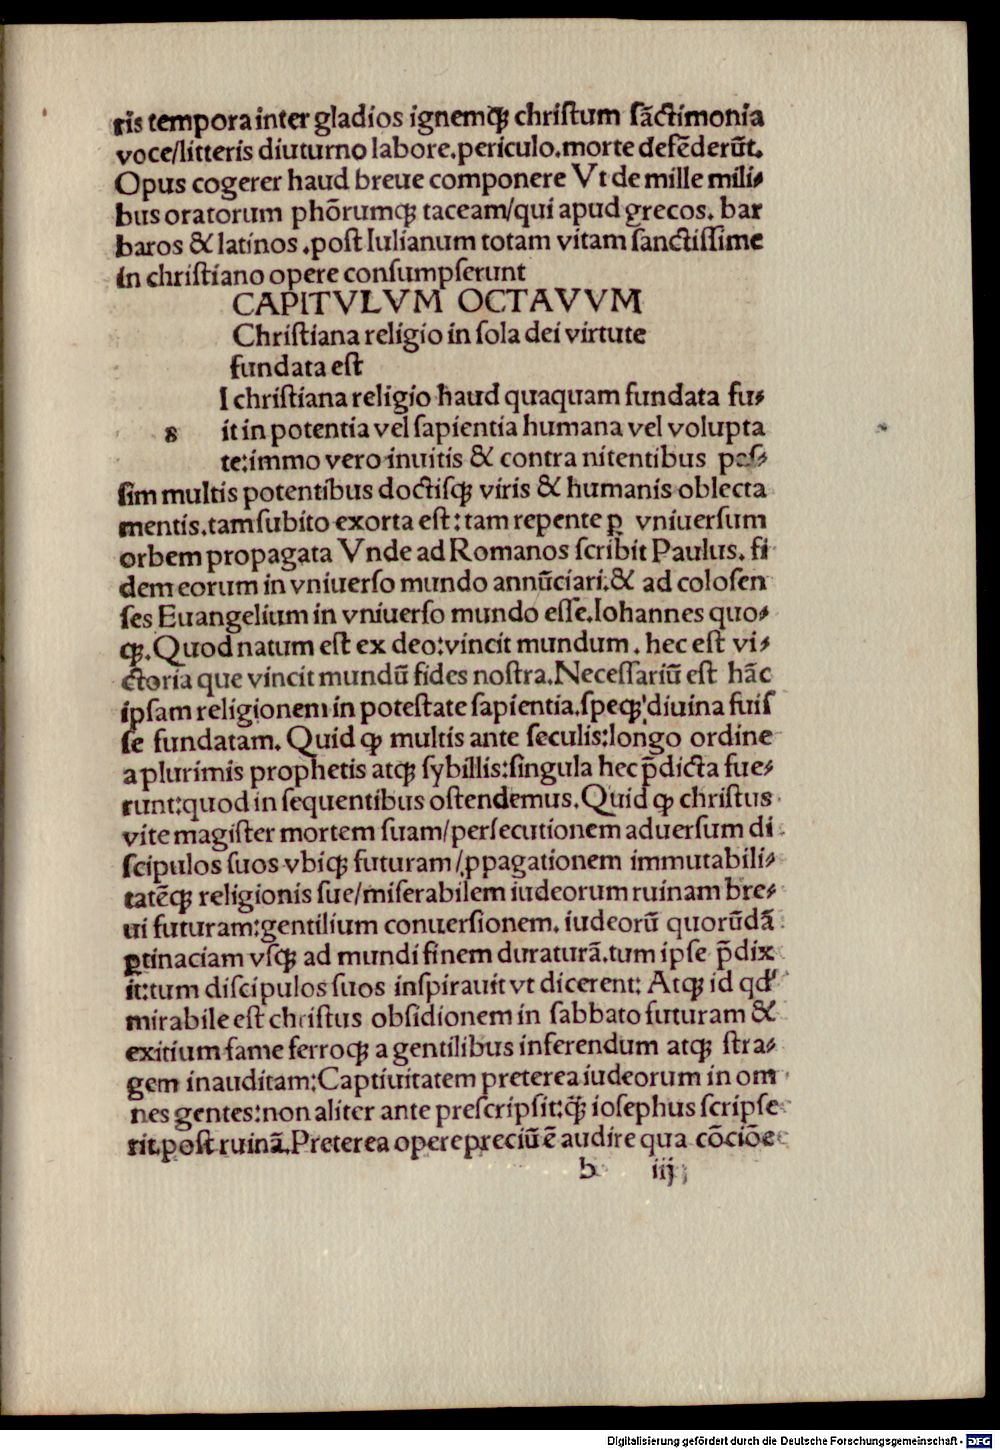 ris tempora inter gladios ignemqꝫ chriſtum ſãctimonia
voce/litteris diuturno labore.periculo.morte defẽderũt.
Opus cogerer haud breue componere Vt de mille mili⸗
bus oratorum phõrumqꝫ taceam/qui apud grecos. bar
baros & latinos .poſt Iulianum totam vitam ſanctiſſime
in chriſtiano opere conſumpſerunt
CAPITVLVM OCTAVVM
Chriſtiana religio in ſola dei virtute
fundata eſt
I chriſtiana religio haud quaquam fundata fu⸗
8 it in potentia vel ſapientia humana vel volupta
te:immo vero inuitis & contra nitentibus paſ⸗
ſim multis potentibus doctiſqꝫ viris & humanis oblecta
mentis.tam ſubito exorta eſt: tam repente ꝑ vniuerſum
orbem propagata Vnde ad Romanos ſcribit Paulus. fi
dem eorum in vniuerſo mundo annũciari.& ad coloſen
ſes Euangelium in vniuerſo mundo eſſe.Iohannes quo⸗
qꝫ.Quod natum eſt ex deo:vincit mundum . hec eſt vi⸗
ctoria que vincit mundũ fides noſtra.Neceſſariũ eſt hãc
ipſam religionem in poteſtate ſapientia.ſpeqꝫ diuina fuiſ
ſe fundatam. Quid ꝙ multis ante ſeculis:longo ordine
a plurimis prophetis atqꝫ ſybillis:ſingula hec p̃dicta fue⸗
runt:quod in ſequentibus oſtendemus.Quid ꝙ chriſtus
vite magiſter mortem ſuam/perſecutionem aduerſum di
ſcipulos ſuos vbiqꝫ futuram/ꝓpagationem immutabili⸗
tatẽqꝫ religionis ſue/miſerabilem iudeorum ruinam bre⸗
ui futuram:gentilium conuerſionem. iudeorũ quorũdã
ꝑtinaciam vſqꝫ ad mundi finem duraturã.tum ipſe p̃dix
it:tum diſcipulos ſuos inſpirauit vt dicerent: Atqꝫ id qd'
mirabile eſt chriſtus obſidionem in ſabbato futuram &
exitium fame ferroqꝫ a gentilibus inferendum atqꝫ ſtra⸗
gem inauditam:Captiuitatem preterea iudeorum in om
nes gentes:non aliter ante preſcripſit:q̃ꝫ ioſephus ſcripſe
rit.poſt ruinã.Preterea operepreciũ ẽ audire qua cõciõe
b iij
Digitalisierung gefördert durch die Deutsche Forschungsgemeinschaft - DFG